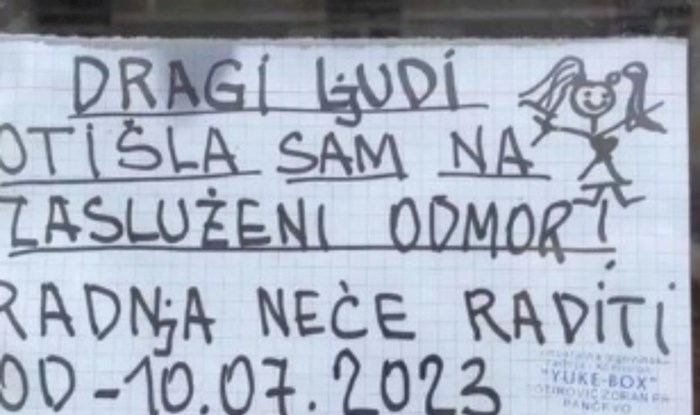 DRAGI LjUDI
OTIŠLA SAM NA
ZASLUŽENI ODMOR!
RADNjA NEĆE RADITI
OD-10.07.2023
"YUKE-BOX"